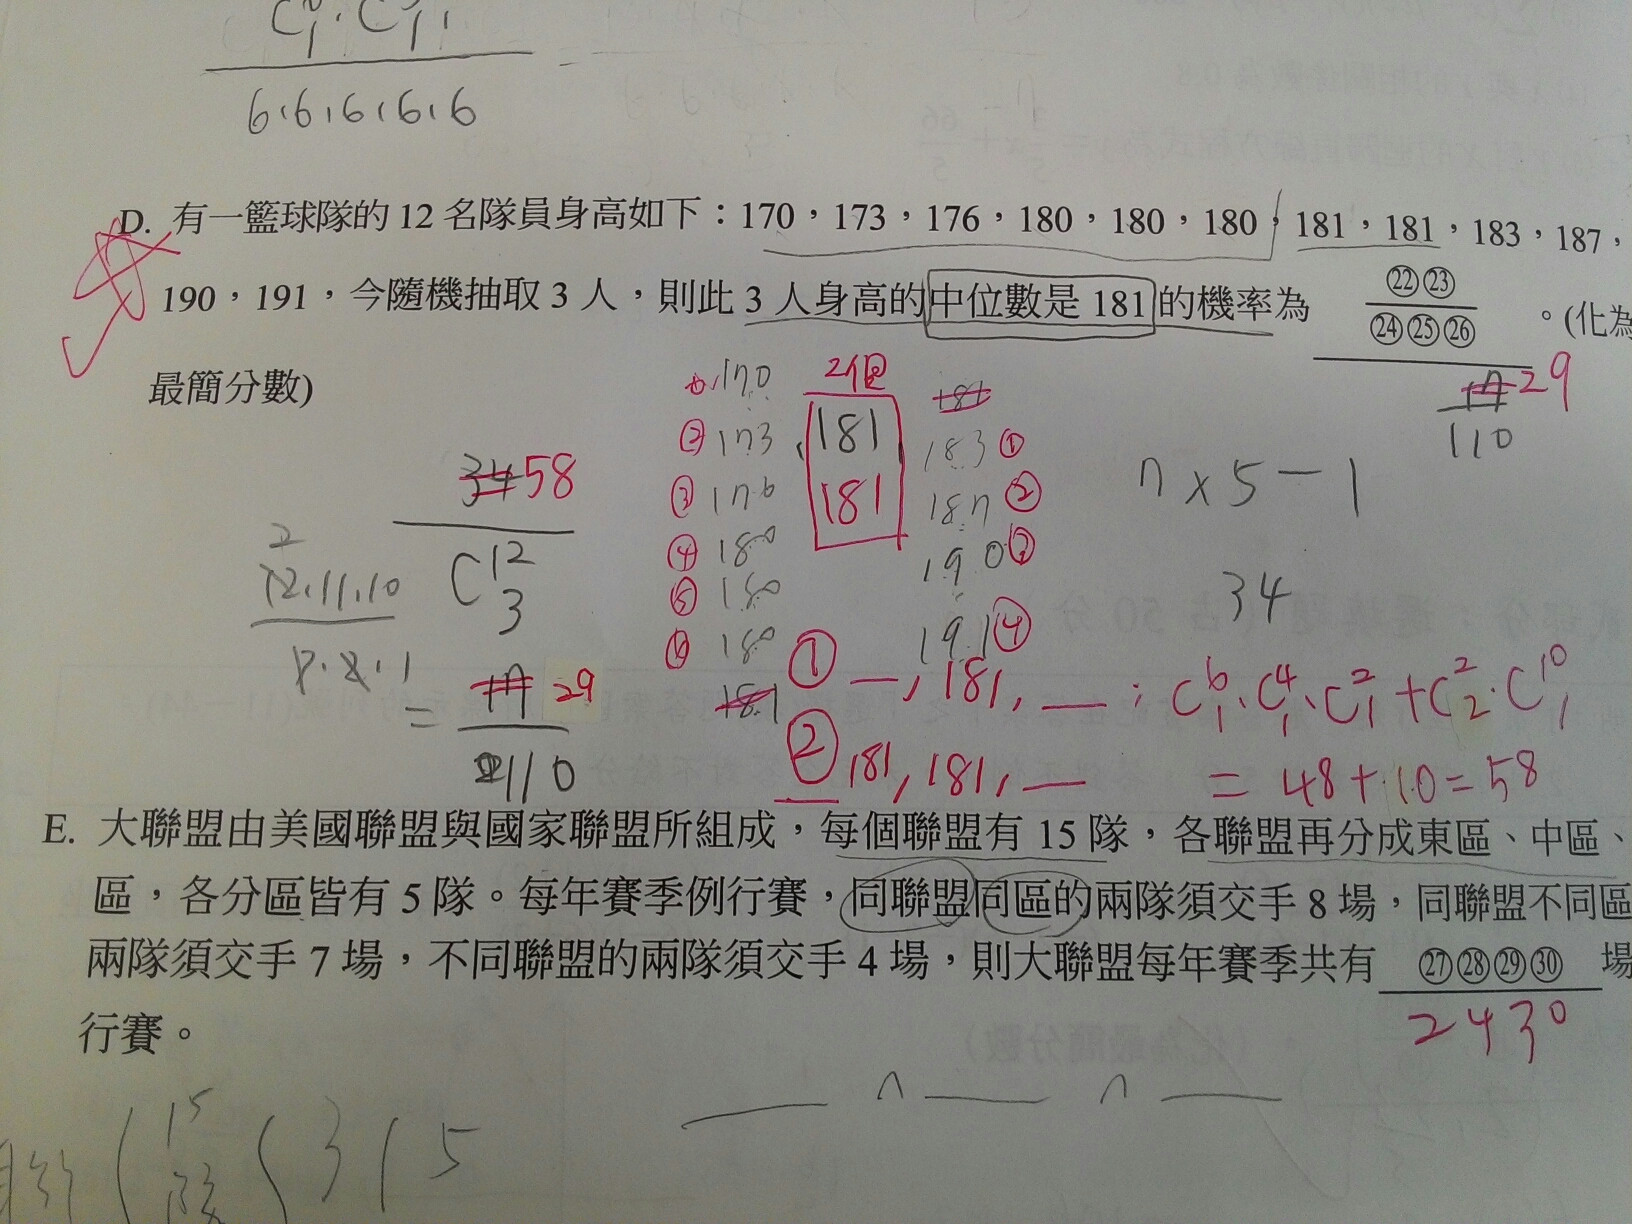 6.6.6.6.6
D. 有一籃球隊的 12 名隊員身高如下：170，173，176，180，180，180，181，181，183，187，
190，191，今隨機抽取 3 人，則此 3 人身高的中位數是 181 的機率為 ㉒㉓/㉔㉕㉖ 。(化為
最簡分數)
29
110
58
C 12 3
12.11.10
2
29
110
170
② 173
③ 176
④ 180
⑤ 180
⑥ 180
2個
181
181
183 ①
187 ②
190 ③
191 ④
7 x 5 - 1
34
① _, 181, _ : C⁶₁.C⁴₁.C²₁ + C²₂.C¹⁰₁
② 181, 181, _ = 48 + 10 = 58
E. 大聯盟由美國聯盟與國家聯盟所組成，每個聯盟有 15 隊，各聯盟再分成東區、中區、
區，各分區皆有 5 隊。每年賽季例行賽，同聯盟同區的兩隊須交手 8 場，同聯盟不同區
兩隊須交手 7 場，不同聯盟的兩隊須交手 4 場，則大聯盟每年賽季共有 ㉗㉘㉙㉚ 場
2430
行賽。
15
隊
3
5